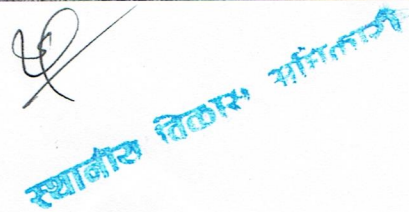 स्थानीय विकास अधिकारी